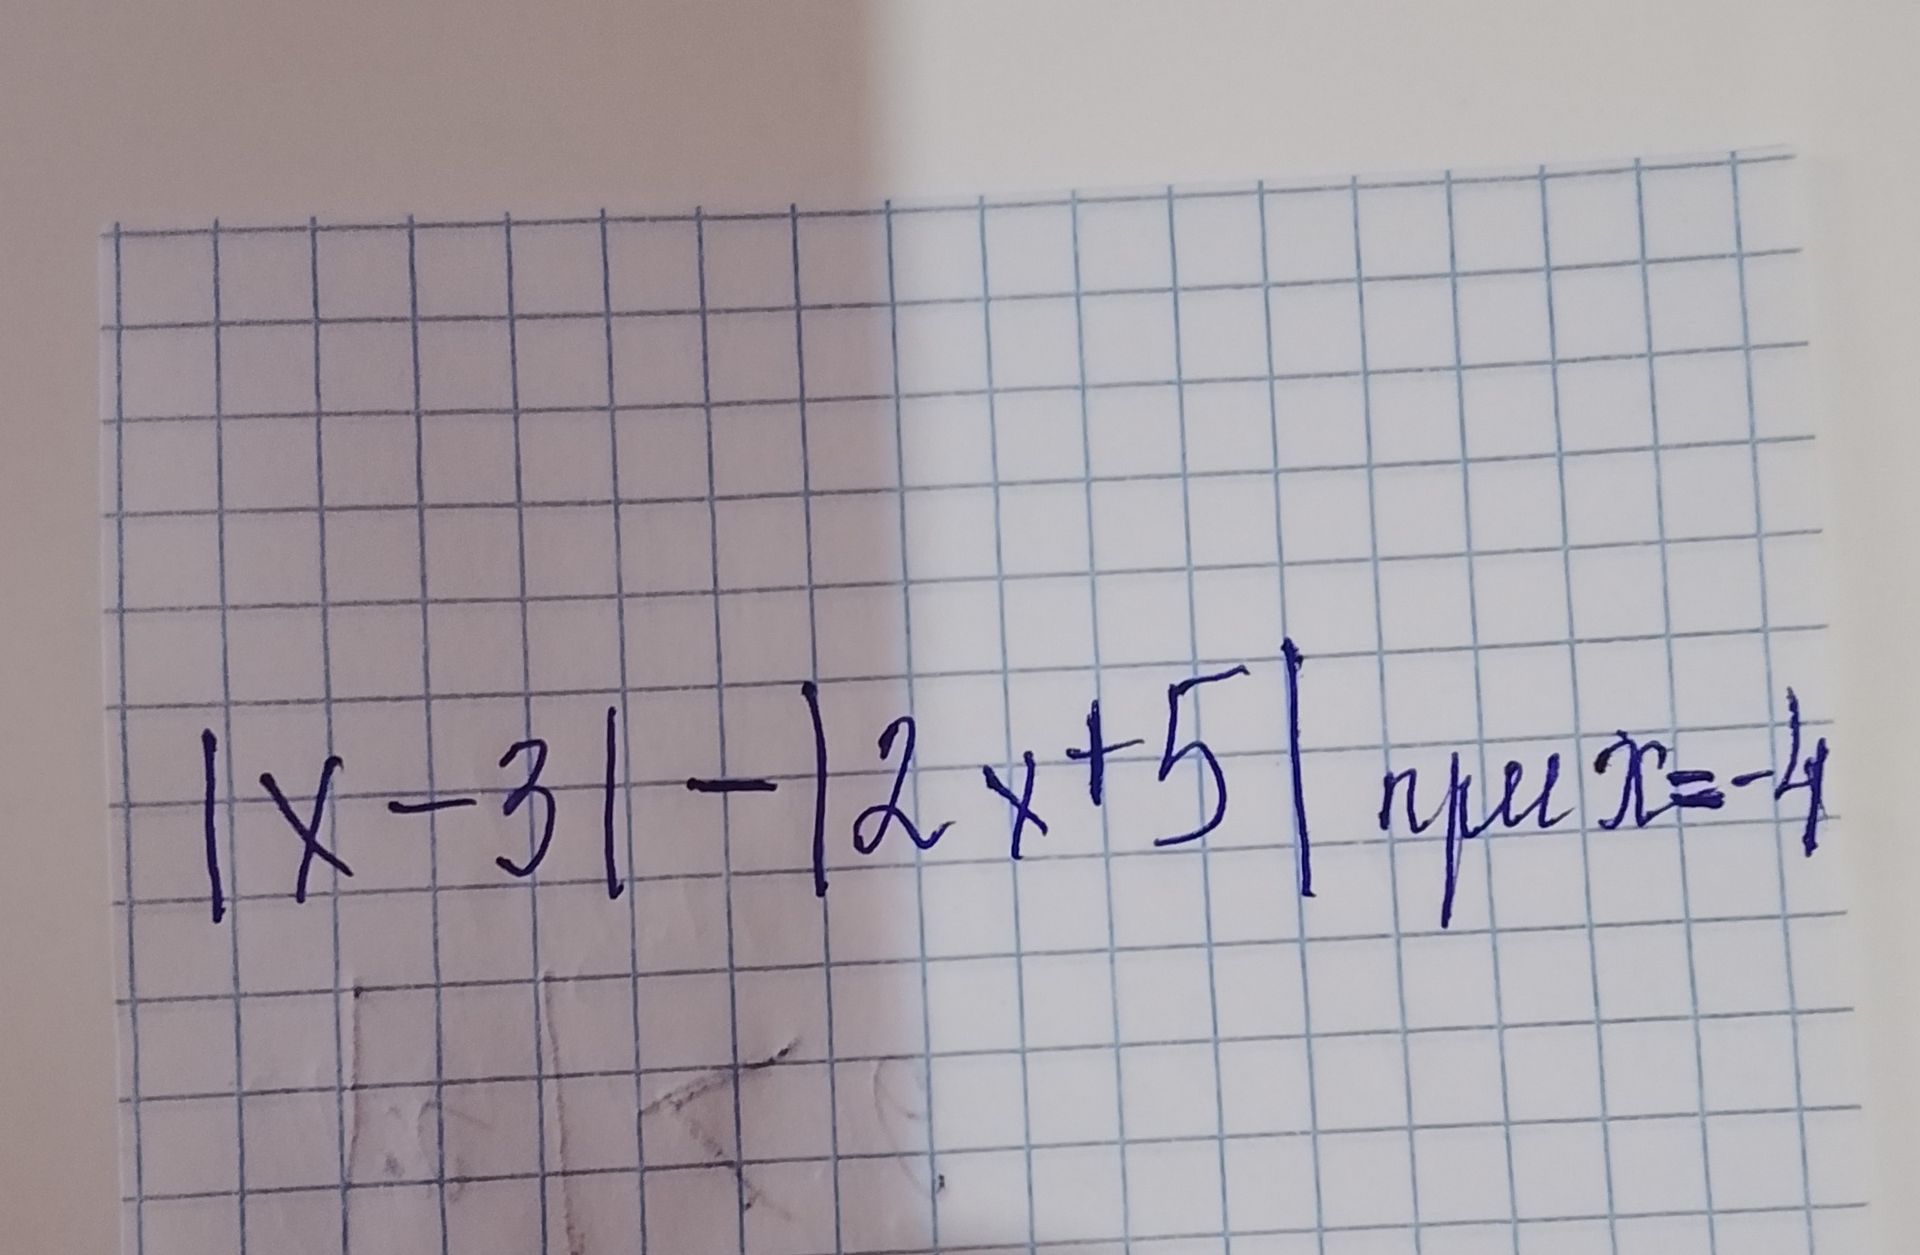 |x-3|-|2x+5| при x=-4